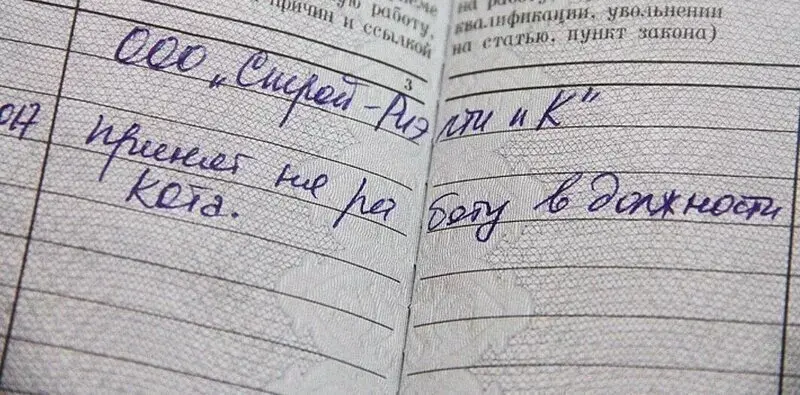 ную работу,
причин и ссылкой
квалификации, увольнении
на статью, пункт закона)
3
ООО „Строй-Риэлти и К"
017 принят на работу в должности
кота.